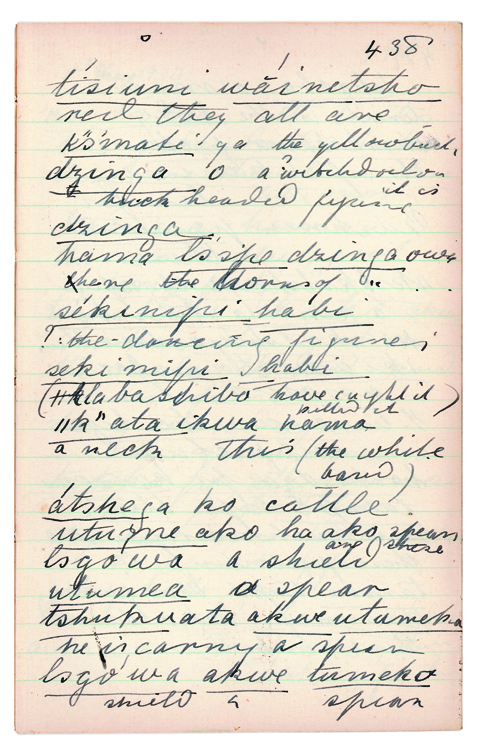 438
tísíuni wāínetsho
red they all are
k"s"mati ya the
dzinga o a
buck headed figure it is
dzinga
hama ĺsípe dzinga owa
there the horns of "
sékinípi habi
? the dancing figures
seki mipi habi
( have caught it )
"k" ata ikwa hama killed it
a neck this (the white
band)
átshega ko cattle
utume ako ha ako spear
lsgowa a shield and these
utumea a spear
tshukuata akwe utumeko
he is carrying a spear
lsgowa akwe tumeko
shield a spear